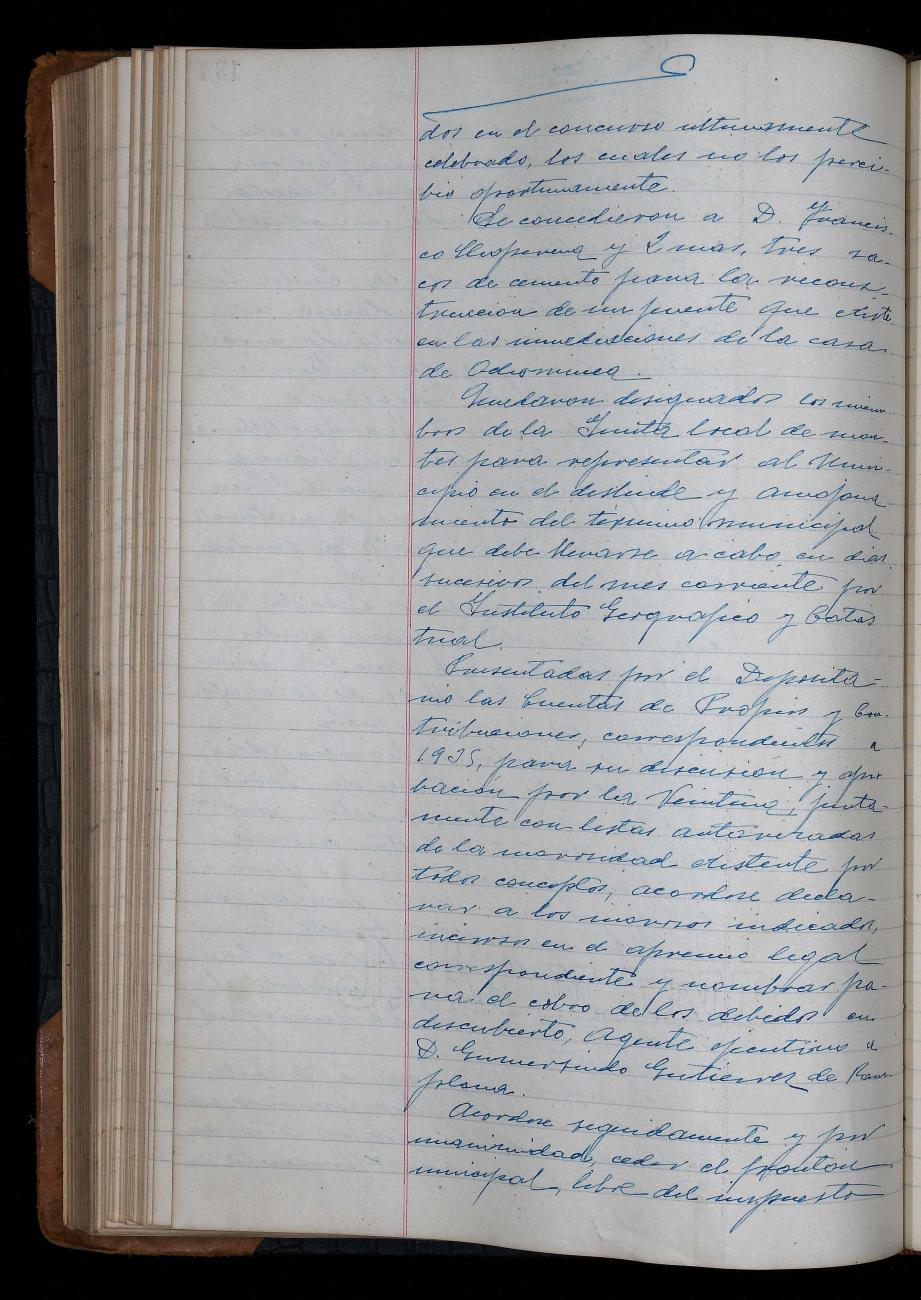 dos en el concurso ultimamente
celebrado, los cuales no los perci-
bio oportunamente.
Se concedieron a D. Francis-
co y 2 mas, tres sa-
cos de cemento para la recons-
truccion de un puente que existe
en las inmediaciones de la casa
de
Quedaron designados los miem-
bros de la Junta local de mon-
tes para representar al Muni-
cipio en el deslinde y amojona-
miento del termino municipal
que debe llevarse a cabo en dias
sucesivos del mes corriente por
el Instituto Geografico y Catas
tral.
Presentadas por el Deposita-
rio las Cuentas de Propios y Con-
tribuciones, correspondientes a
1935, para su discusion y apro
bacion por la Veintena, junta-
mente con listas autorizadas
de la morosidad existente por
todos conceptos, acordose decla-
rar a los morosos indicados,
incursos en el apremio legal
correspondiente y nombrar pa-
ra el cobro de los debedos en
descubierto, Agente ejecutivo a
D. Gumersindo Gutierrez de Pam-
plona.
Acordose seguidamente y por
unanimidad, ceder el fronton
municipal, libre del impuesto